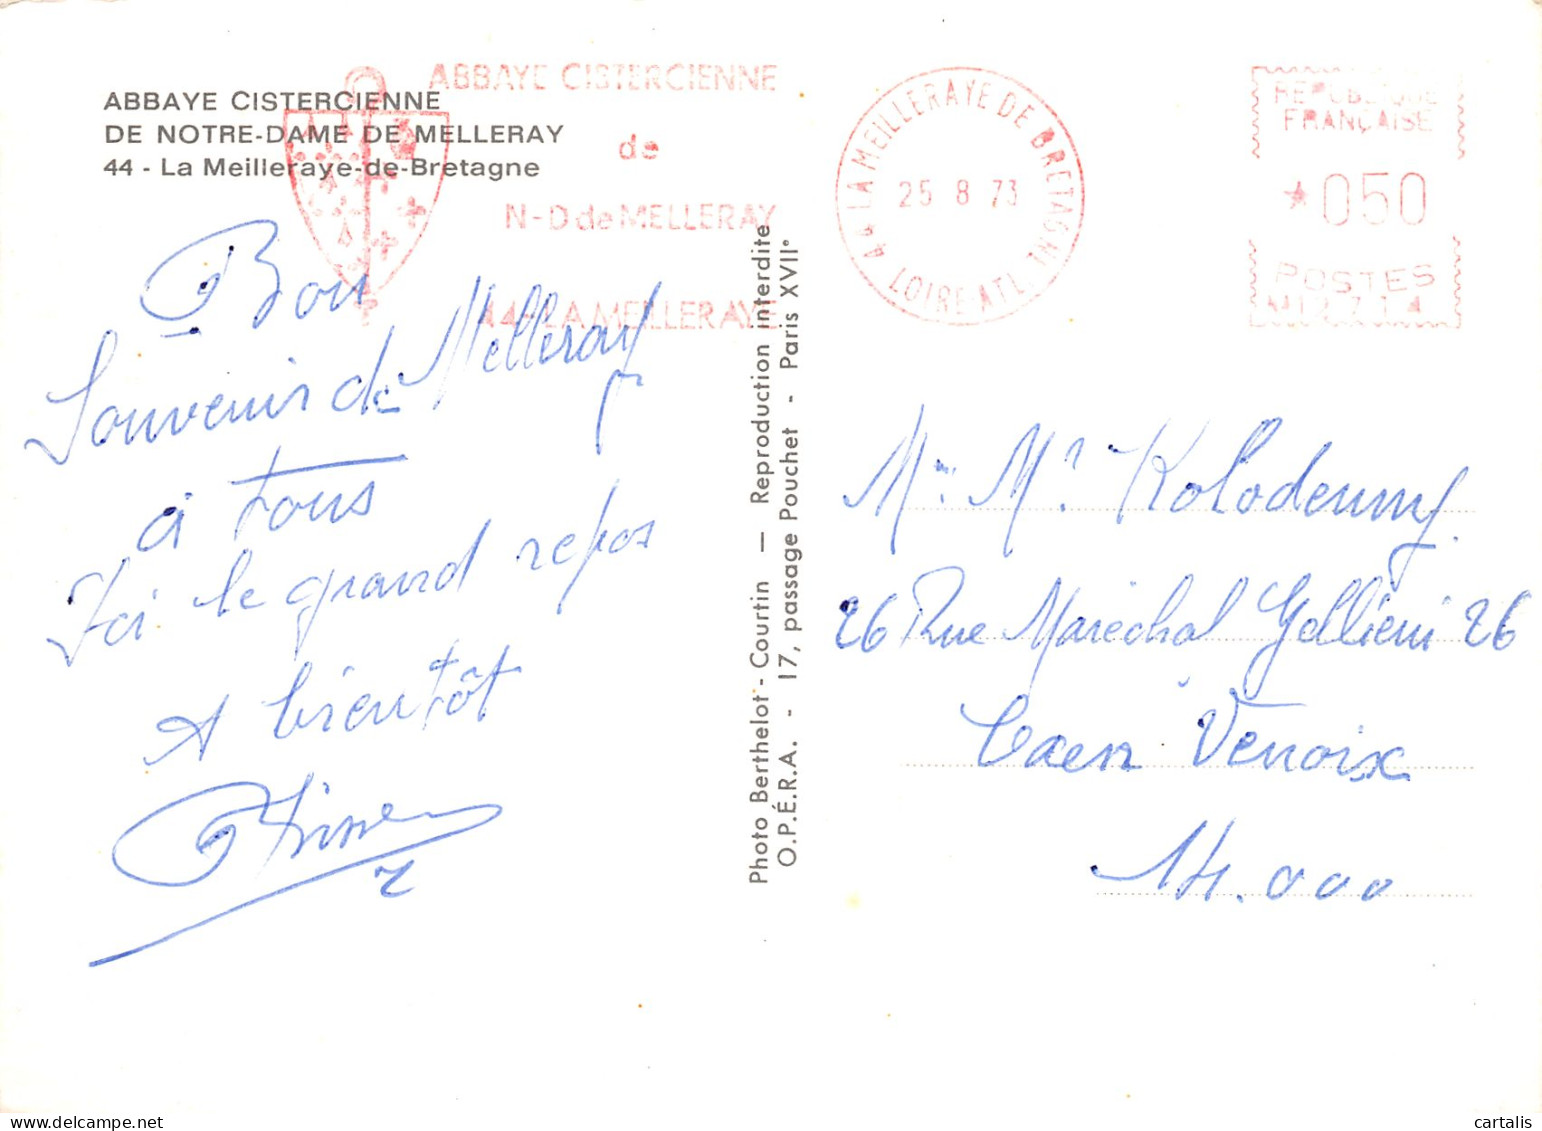 ABBAYE CISTERCIENNE
DE NOTRE-DAME DE MELLERAY
44 - La Meilleraye-de-Bretagne
ABBAYE CISTERCIENNE
de
N-D de MELLERAY
44-LA MEILLERAYE
44 LA MEILLERAYE DE BRETAGNE
25 8 73
LOIRE-ATL.
REPUBLIQUE
FRANÇAISE
*050
POSTES
Bon
Souvenir de Melleray
à tous
Ici le grand repos
A bientôt
Photo Berthelot - Courtin — Reproduction interdite
O.P.É.R.A. - 17, passage Pouchet - Paris XVII°
Mme Mr Kolodenny
26 Rue Maréchal Gallieni 26
Caen Venoix
14.000
cartalis